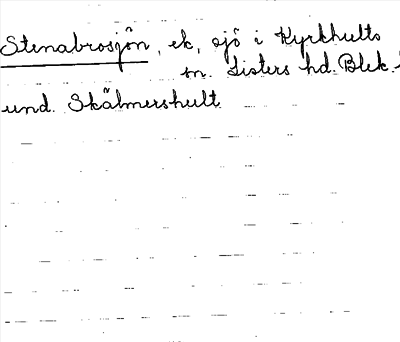 Stenabrosjön, ek, sjö i Kyrkhults
sn. Listers hd. Blek.
und. Skälmershult